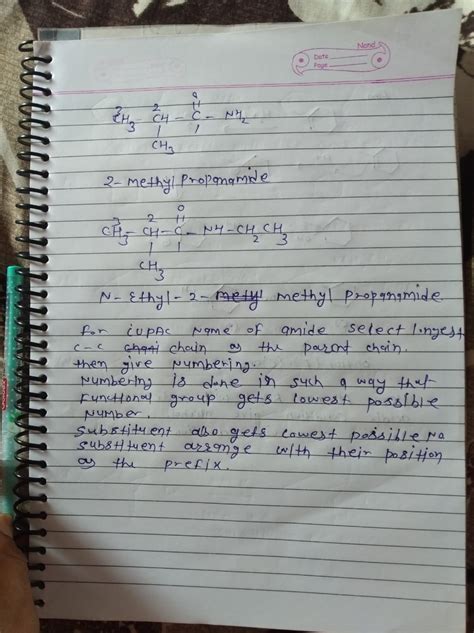 Nand
Date
Page
O
3 2 ||
CH3 - CH - C - NH2
| 1
CH3
2-methyl propanamide
O
3 2 ||
CH3 - CH - C - NH - CH2 CH3
| 1
CH3
N-Ethyl-2-methyl methyl propanamide.
for iUPAC name of amide select longest
c-c chani chain as the parent chain.
then give numbering.
Numbering is done in such a way that
functional group gets lowest possible
number.
Substituent also gets lowest possible no
substituent arrange with their position
as the prefix.